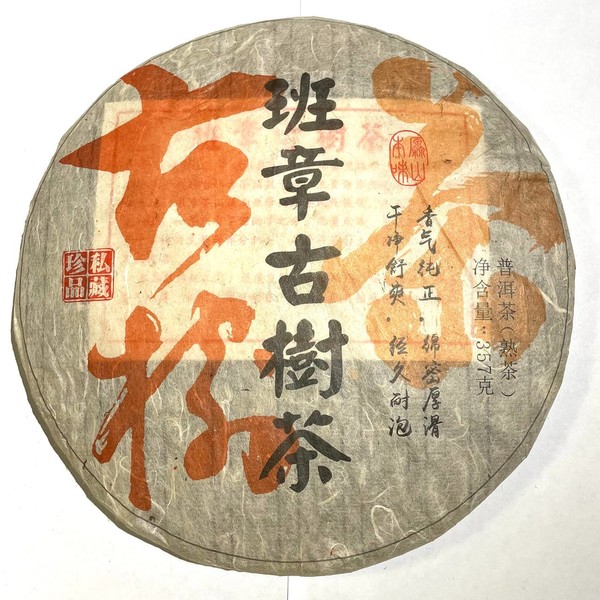 班章古樹茶
古樹
茶
香气纯正·绵密厚滑
干净舒爽·经久耐泡
普洱茶（熟茶）
净含量：357克
私藏
珍品
本味